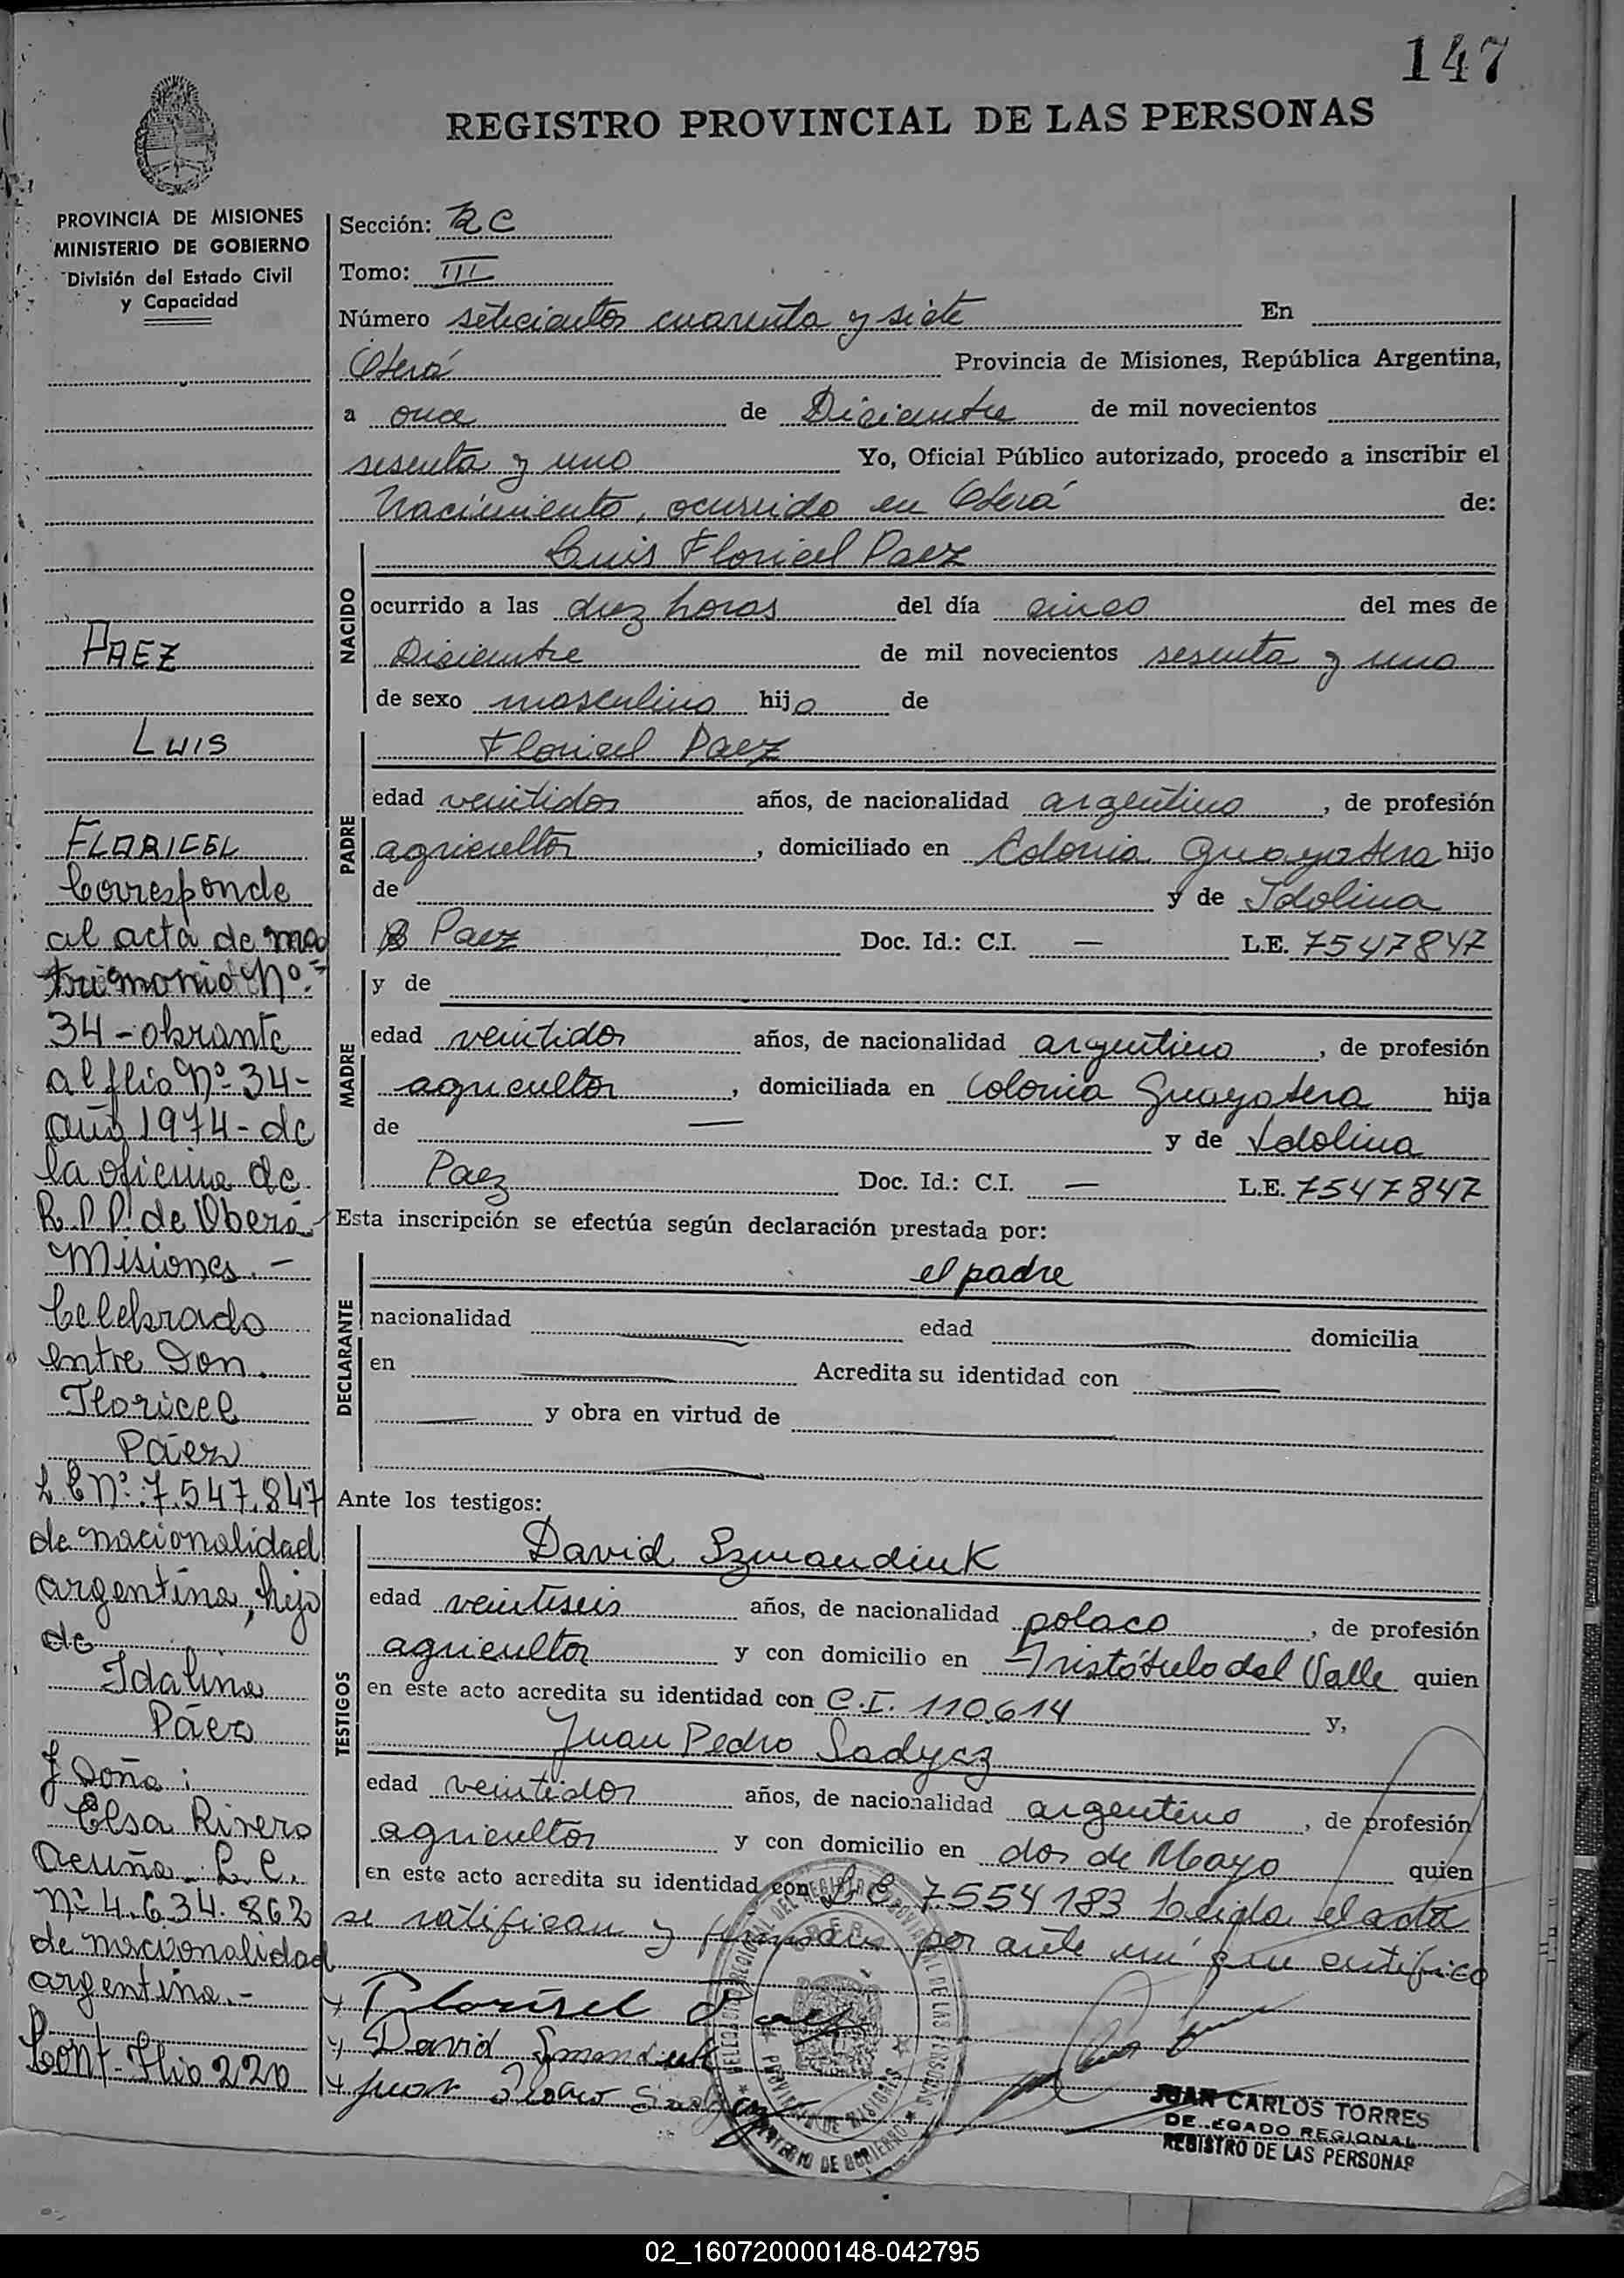 147
REGISTRO PROVINCIAL DE LAS PERSONAS
PROVINCIA DE MISIONES
MINISTERIO DE GOBIERNO
División del Estado Civil
y Capacidad
PAEZ
LUIS
FLORICEL
Corresponde
al acta de ma
trimonio Nº
34-obrante
al flio Nº 34-
año 1974-de
la oficina de
R.P.P. de Oberá
Misiones.-
Celebrado
entre Don
Floricel
Páez
L E Nº: 7.547.847
de nacionalidad
argentina, hijo
de
Idalina
Páez
y Doña:
Elsa Rivero
Acuña L.C.
Nº 4.634.862
de nacionalidad
argentina.-
Cont-Flio 220
Sección: RC
Tomo: III
Número setecientos cuarenta y siete En
Oberá Provincia de Misiones, República Argentina,
a once de Diciembre de mil novecientos
sesenta y uno Yo, Oficial Público autorizado, procedo a inscribir el
Nacimiento, ocurrido en Oberá de:
NACIDO
Luis Floricel Paez
ocurrido a las diez horas del día cinco del mes de
Diciembre de mil novecientos sesenta y uno
de sexo masculino hijo de
PADRE
Floricel Paez
edad veintidos años, de nacionalidad argentino, de profesión
agricultor, domiciliado en Colonia Guayabera hijo
de y de Idolina
Paez Doc. Id.: C.I. — L.E. 7547847
MADRE
y de
edad veintidos años, de nacionalidad argentino, de profesión
agricultor, domiciliada en Colonia Guayabera hija
de — y de Idolina
Paez Doc. Id.: C.I. — L.E. 7547847
Esta inscripción se efectúa según declaración prestada por:
DECLARANTE
el padre
nacionalidad edad domicilia
en Acredita su identidad con
y obra en virtud de
Ante los testigos:
TESTIGOS
David Szmandiuk
edad veintiseis años, de nacionalidad polaco, de profesión
agricultor y con domicilio en Aristóbulo del Valle quien
en este acto acredita su identidad con C.I. 110.614 y,
Juan Pedro Sadycz
edad veintidos años, de nacionalidad argentino, de profesión
agricultor y con domicilio en dos de Mayo quien
en este acto acredita su identidad con L.E. 7.554183 Leida el acta
se ratifican y firman por ante mí que certifico
Floricel Paez
David Smandiuk
Juan Pedro
DELEGACION REGIONAL DEL REGISTRO PROVINCIAL DE LAS PERSONAS
OBERA
PROVINCIA DE MISIONES
MINISTERIO DE GOBIERNO
JUAN CARLOS TORRES
DELEGADO REGIONAL
REGISTRO DE LAS PERSONAS
02_160720000148-042795